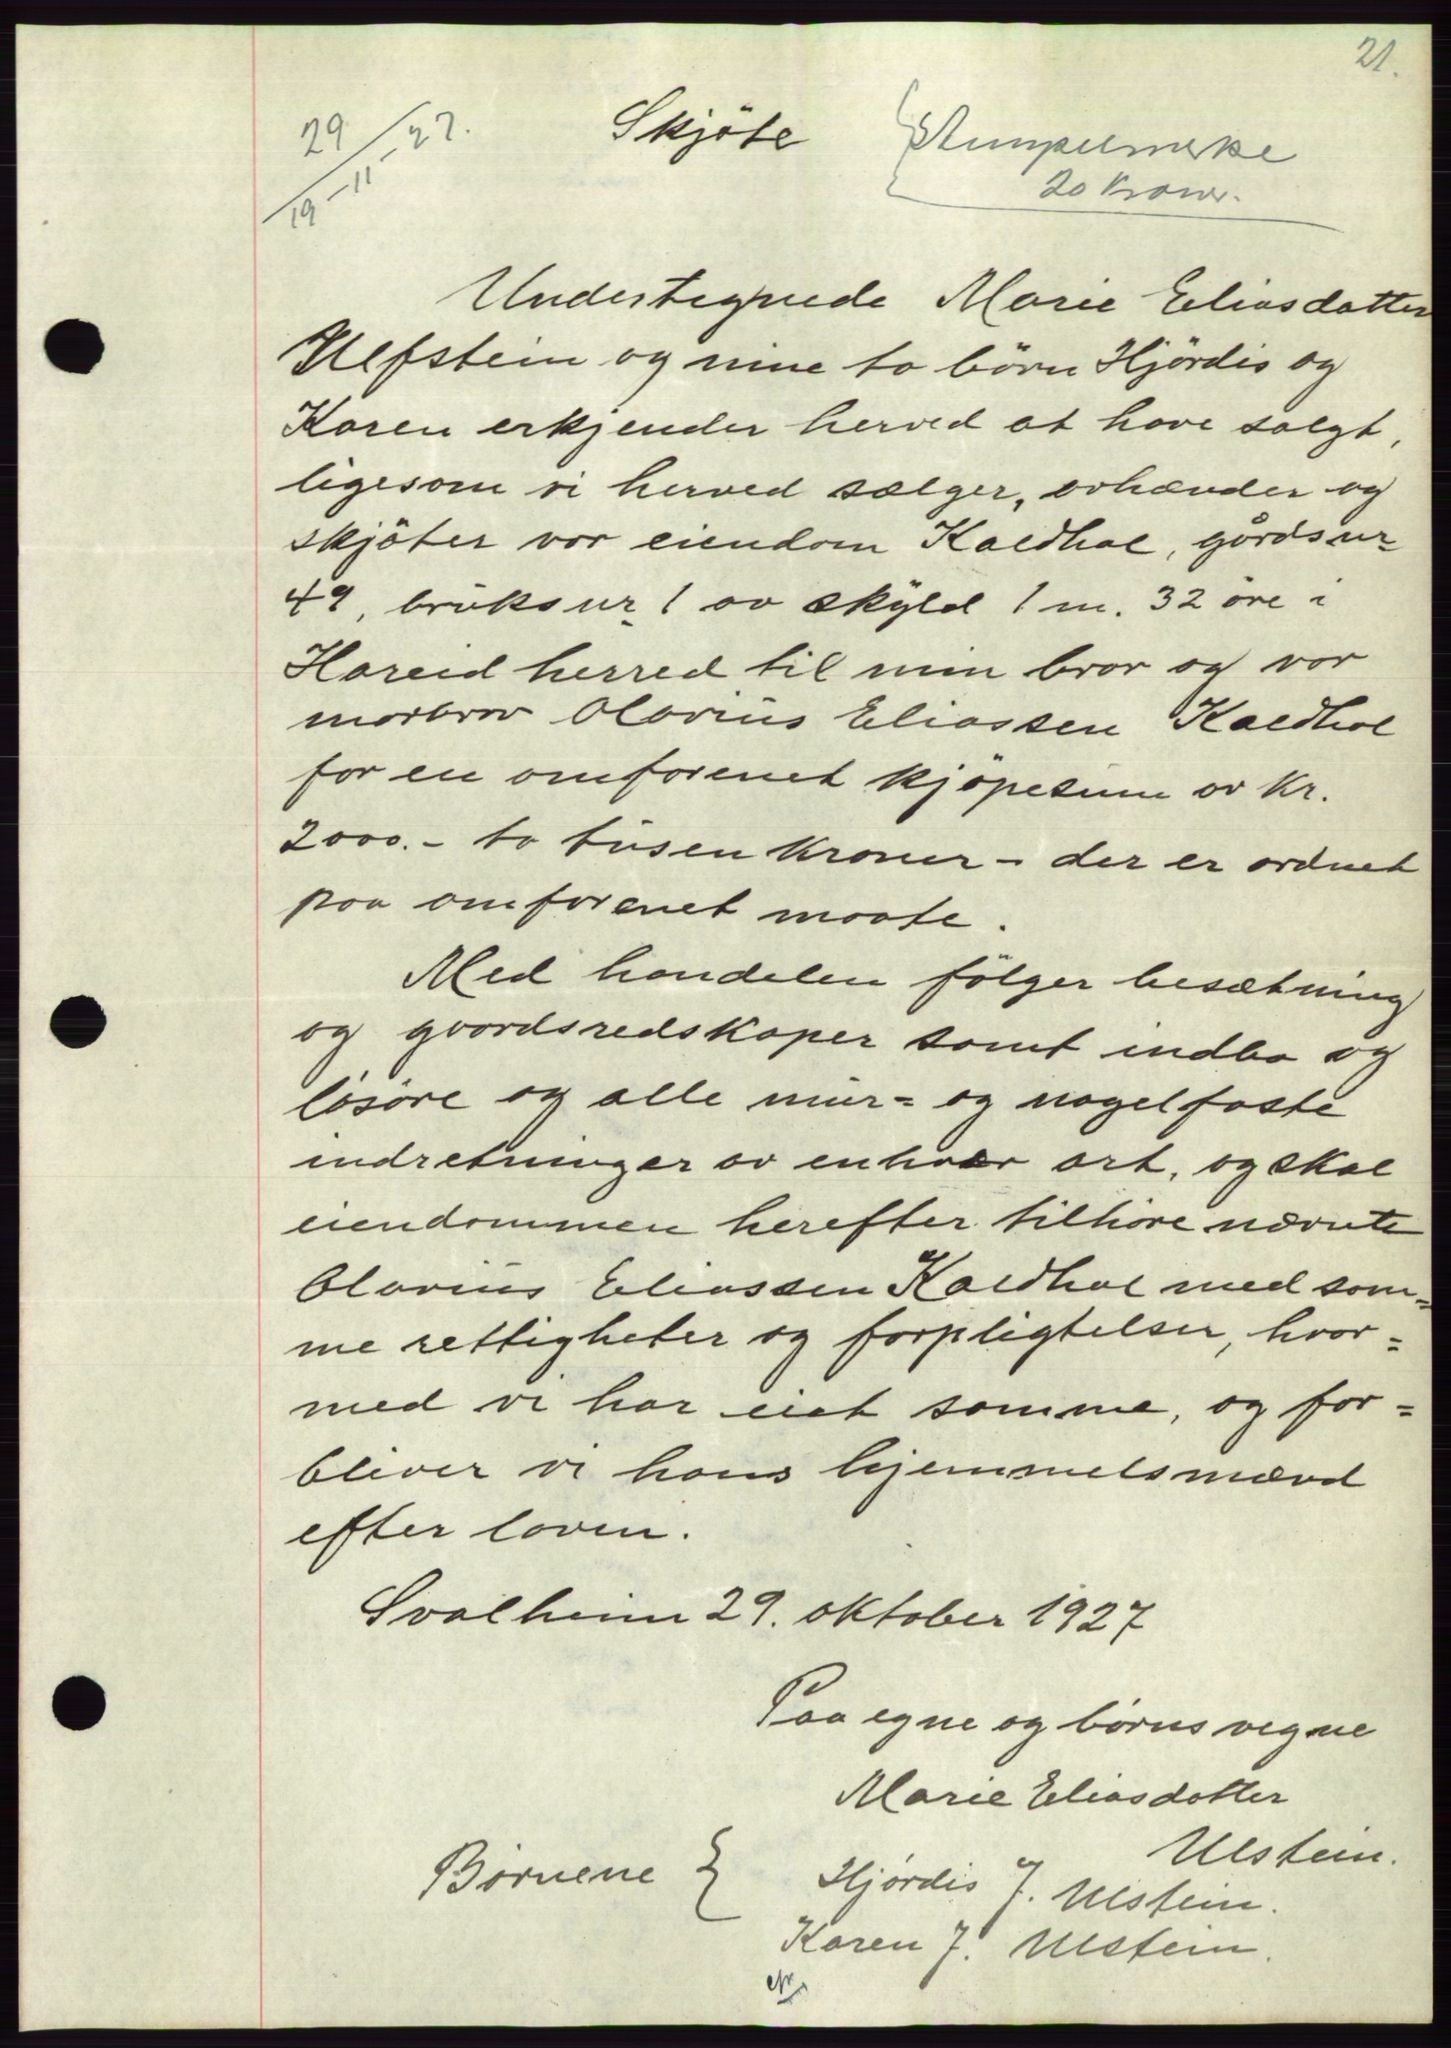 21.
29/19-11-27.
Skjöte
Stempelmerke
20 kroner.
Undertegnede Marie Eliasdatter
Ulfstein og mine to börn Hjördis og
Karen erkjender herved at have solgt,
ligesom vi herved sælger, avhænder og
skjöter vor eiendom Kaldhol, gårdsnr
49, brüksnr 1 av skÿld 1 m. 32 öre i
Hareid herred til min bror og vor
morbror Olavius Eliassen Kaldhol
for en omforenet kjöpesum av kr.
2000.- to tüsen kroner - der er ordnet
paa omforenet maate.
Med handelen fölger besætning
og gaardsredskaper samt indbo og
lösöre og alle mür= og nagelfaste
indretninger av enhver art, og skal
eiendommen herefter tilhöre nævnte
Olavius Eliassen Kaldhol med sam=
me rettigheter og forpligtelser, hvor=
med vi har eiet samme, og for=
bliver vi hans hjemmelsmænd
efter loven.
Svalheim 29. oktober 1927
Paa egne og börns vegne
Marie Eliasdatter
Ulstein.
Börnene { Hjördis J. Ulstein.
Karen J. Ulstein.